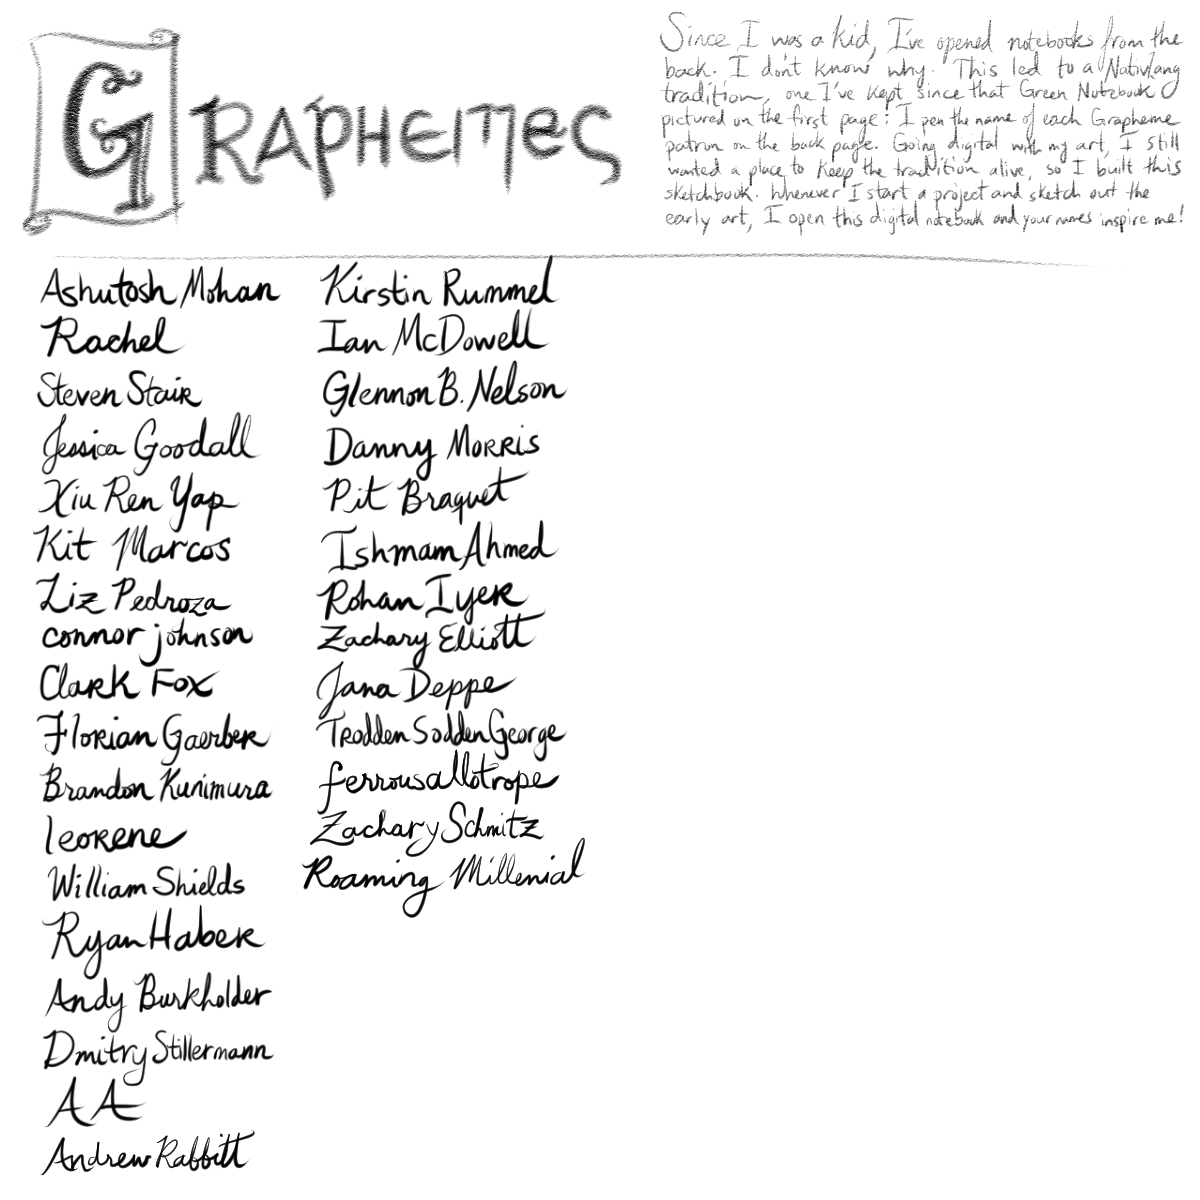 GRAPHEMES
Since I was a kid, I've opened notebooks from the
back. I don't know why. This led to a NativLang
tradition, one I've kept since that Green Notebook
pictured on the first page: I pen the name of each Grapheme
patron on the back page. Going digital with my art, I still
wanted a place to keep the tradition alive, so I built this
sketchbook. Whenever I start a project and sketch out the
early art, I open this digital notebook and your names inspire me!
Ashutosh Mohan
Rachel
Steven Stair
Jessica Goodall
Xiu Ren Yap
Kit Marcos
Liz Pedroza
connor johnson
Clark Fox
Florian Gaerber
Brandon Kunimura
leorene
William Shields
Ryan Haber
Andy Burkholder
Dmitry Stillermann
A A
Andrew Rabbitt
Kirstin Rummel
Ian McDowell
Glennon B. Nelson
Danny Morris
Pit Braquet
Ishmam Ahmed
Rohan Iyer
Zachary Elliott
Jana Deppe
Trodden Sodden George
ferrousallotrope
Zachary Schmitz
Roaming Millenial